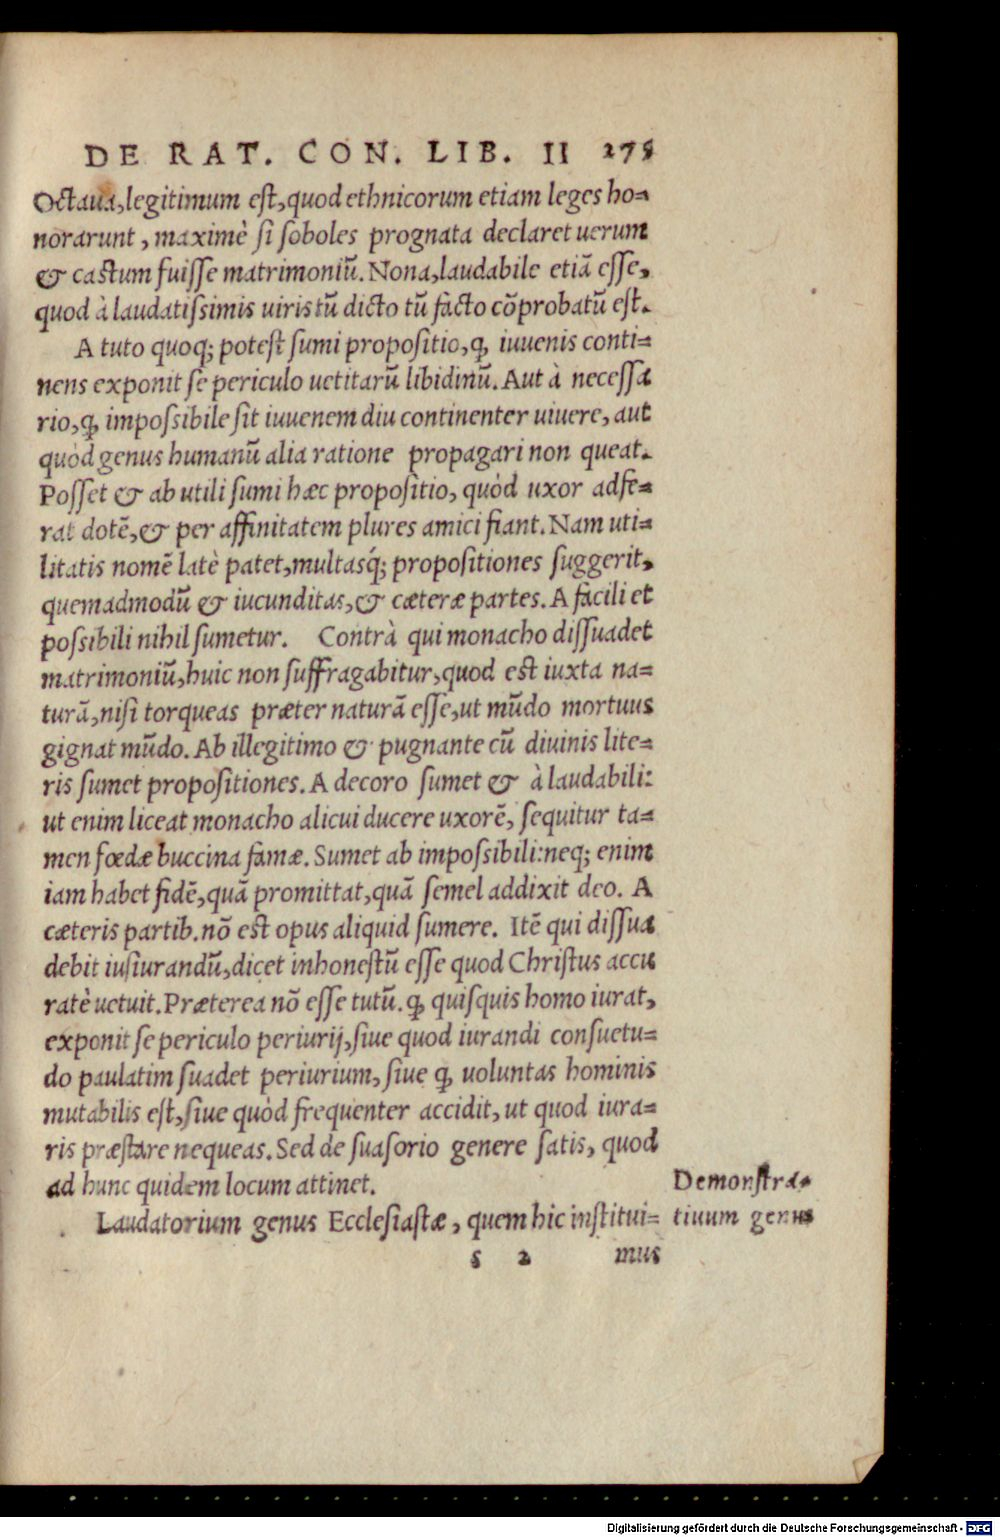 DE RAT. CON. LIB. II 275
Octaua, legitimum est, quod ethnicorum etiam leges ho=
norarunt, maximè si soboles prognata declaret uerum
& castum fuisse matrimoniū. Nona, laudabile etiā esse,
quod à laudatissimis uiris tū dicto tū facto cōprobatū est.
A tuto quoq; potest sumi propositio, ꝙ iuuenis conti=
nens exponit se periculo uetitarū libidinū. Aut à necessa
rio, ꝙ impossibile sit iuuenem diu continenter uiuere, aut
quòd genus humanū alia ratione propagari non queat.
Posset & ab utili sumi hæc propositio, quòd uxor adfe=
rat dotē, & per affinitatem plures amici fiant. Nam uti=
litatis nomē latè patet, multasq́; propositiones suggerit,
quemadmodū & iucunditas, & cæteræ partes. A facili et
possibili nihil sumetur. Contrà qui monacho dissuadet
matrimoniū, huic non suffragabitur, quod est iuxta na=
turā, nisi torqueas præter naturā esse, ut mūdo mortuus
gignat mūdo. Ab illegitimo & pugnante cū diuinis lite=
ris sumet propositiones. A decoro sumet & à laudabili:
ut enim liceat monacho alicui ducere uxorē, sequitur ta=
men fœdæ buccina famæ. Sumet ab impossibili: neq; enim
iam habet fidē, quā promittat, quā semel addixit deo. A
cæteris partib. nō est opus aliquid sumere. Itē qui dissua
debit iusiurandū, dicet inhonestū esse quod Christus accu
ratè uetuit. Præterea nō esse tutū. ꝙ quisquis homo iurat,
exponit se periculo periurij, siue quod iurandi consuetu=
do paulatim suadet periurium, siue ꝙ uoluntas hominis
mutabilis est, siue quòd frequenter accidit, ut quod iura=
ris præstare nequeas. Sed de suasorio genere satis, quod
ad hunc quidem locum attinet.
Laudatorium genus Ecclesiastæ, quem hic institui=
Demonstra=
tiuum genus
s 2 mus
Digitalisierung gefördert durch die Deutsche Forschungsgemeinschaft - DFG